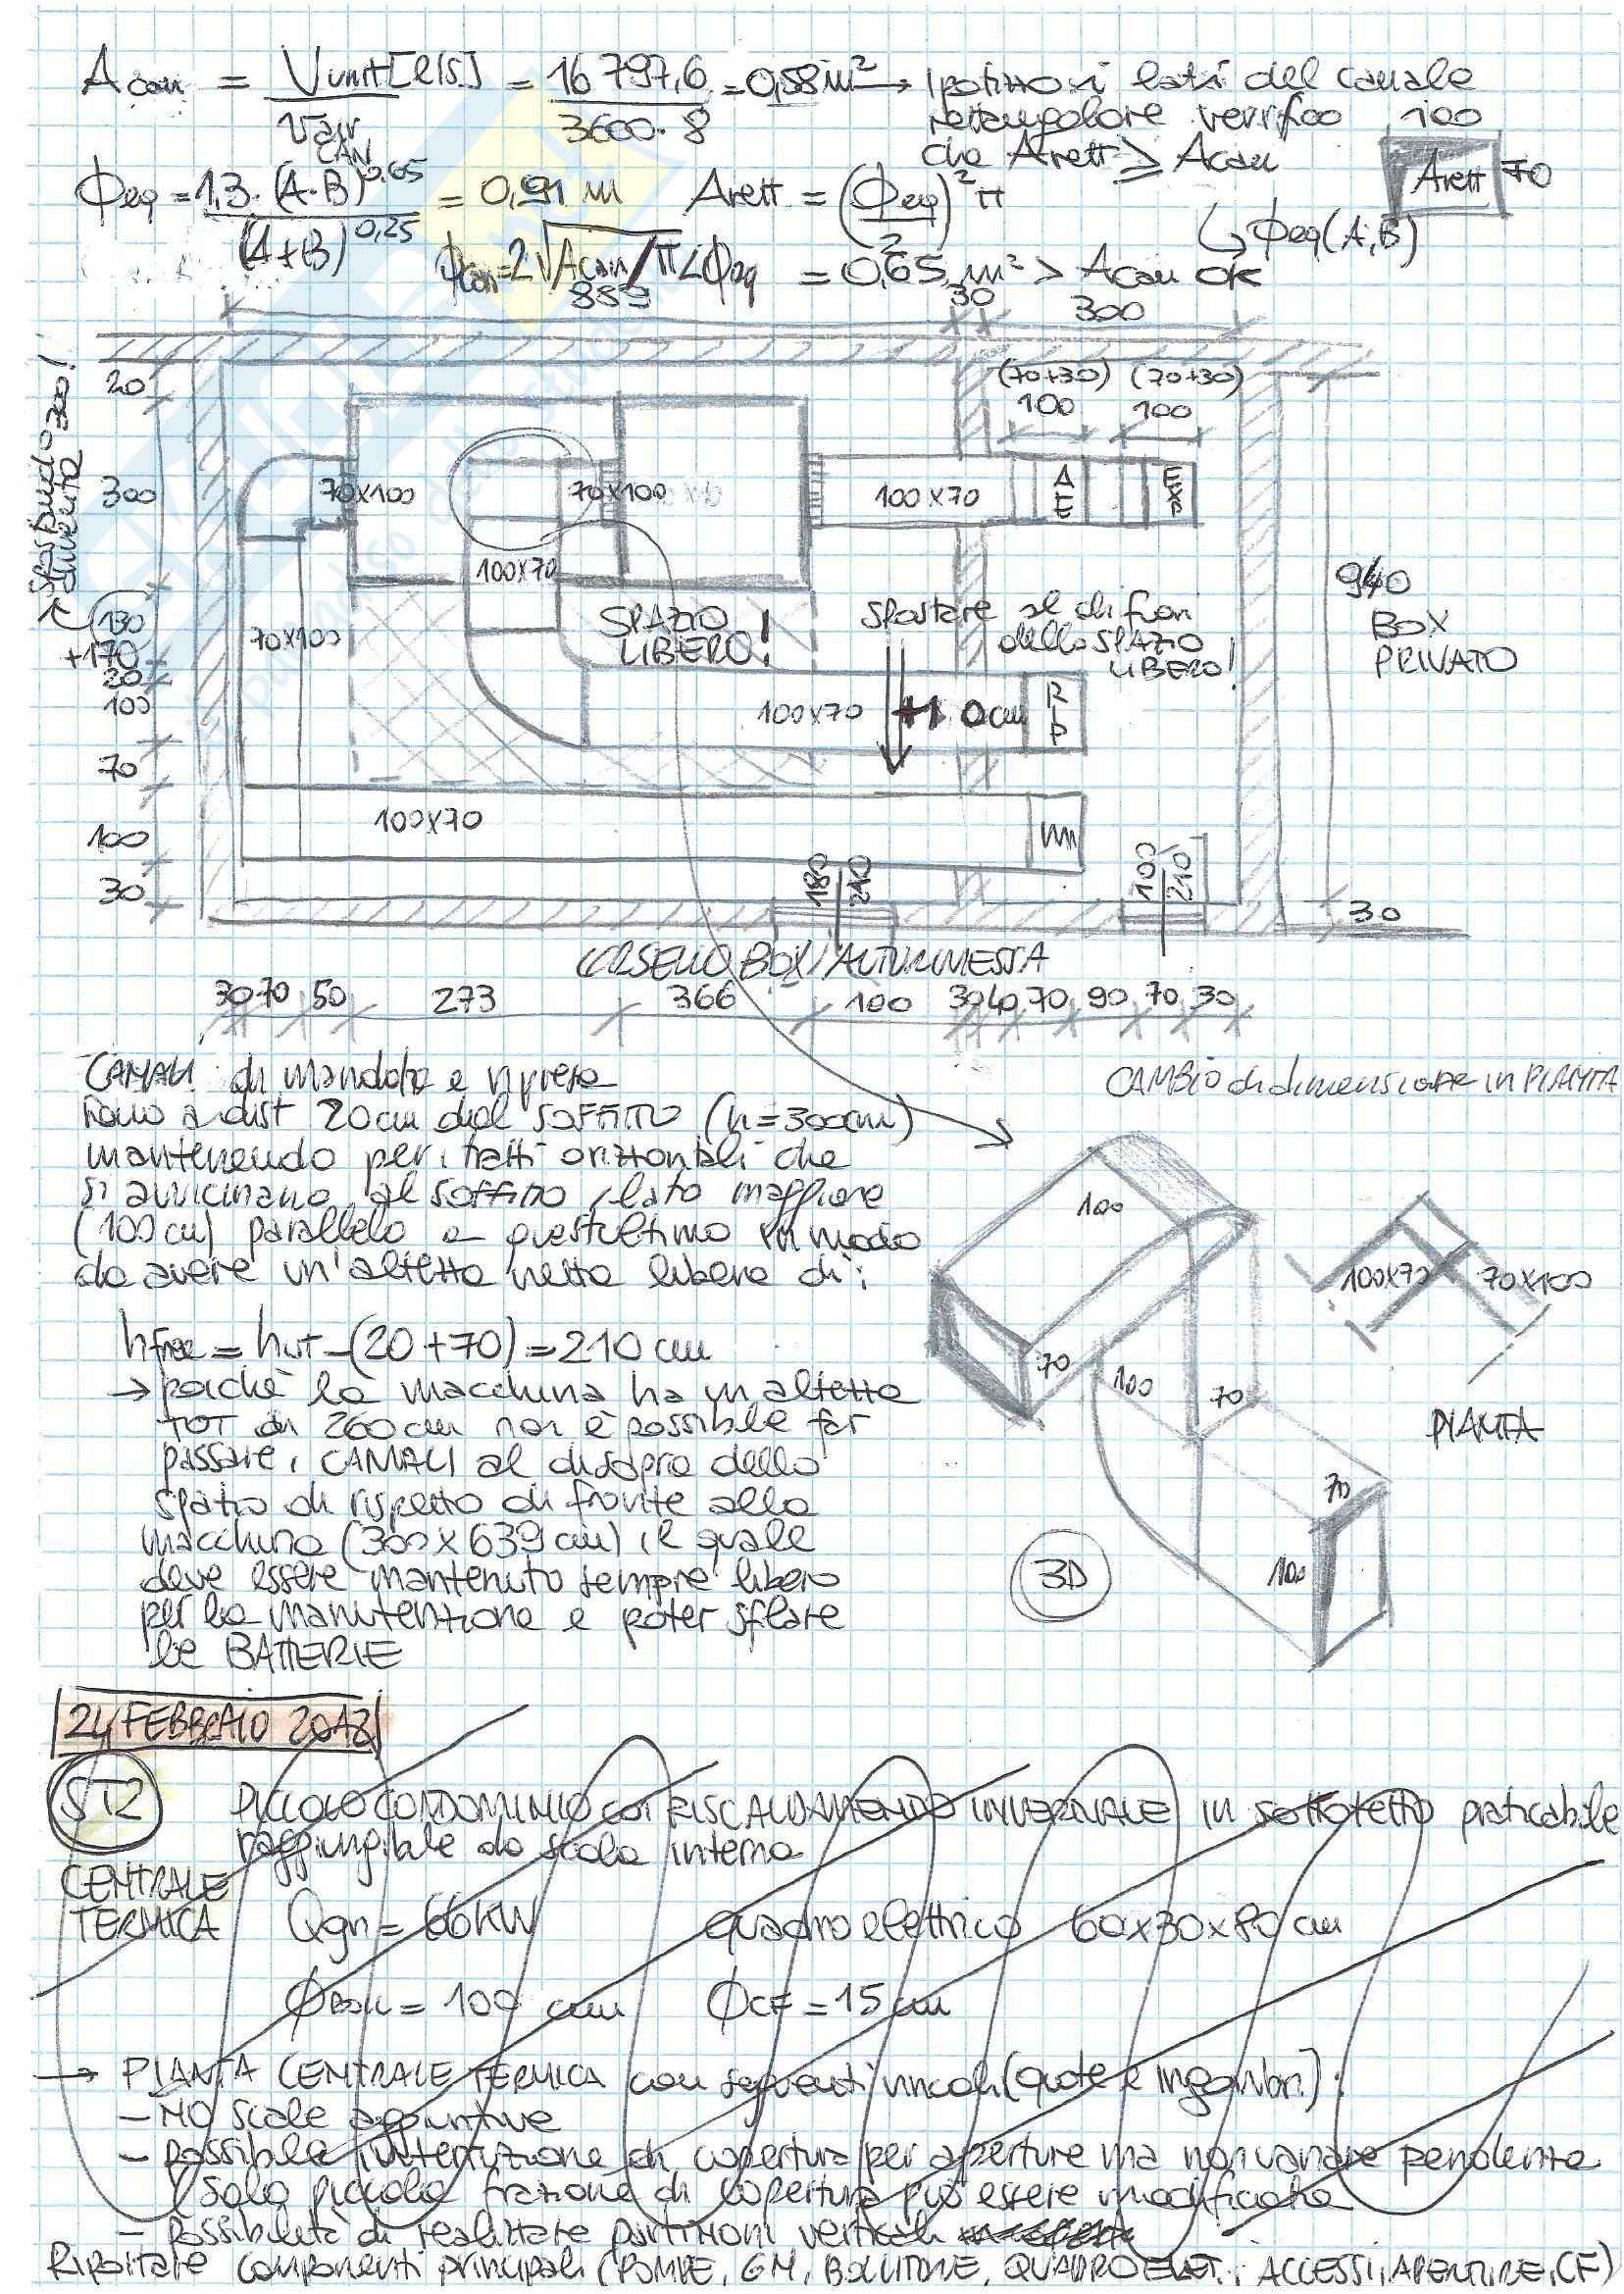 Acan = Vunit[l/s] / Vair CAN = 16 797,6 / 3600·8 = 0,58 m² → Ipotizzo i lati del canale
rettangolare verifico 100
che Arett ≥ Acan Arett 70
Φeq = 1,3·(A·B)^0,65 / (A+B)^0,25 = 0,91 m Arett = (Φeq/2)² π ↳ Φeq(A,B)
Φcan = 2√Acan/π < Φeq = 0,65 m² > Acan OK
889 30 300
20 (70+30) (70+30)
100 100
spostando diventa 300!
300 70x100 70x100 100x70 AE ESP
100x70
130 +170 70x100 SPAZIO LIBERO! spostare al di fuori dello SPAZIO LIBERO! 940 BOX PRIVATO
20
100 100x70 +10cm RIP
70
100 100x70 IM
30 180/210 100/210 30
CORSELLO BOX/AUTORIMESSA
30 70 50 273 366 100 30 40 70 90 70 30
CANALI di mandata e ripresa
sono a dist 20cm dal SOFFITTO (h=300cm)
mantenendo per i tratti orizzontali che
si avvicinano al soffitto, lato maggiore
(100cm) parallelo a quest'ultimo in modo
da avere un'altezza netta libera di:
hfree = hUT - (20+70) = 210 cm
→ poichè la macchina ha un altezza
TOT di 260cm non è possibile far
passare i CANALI al disopra dello
spazio di rispetto di fronte alla
macchina (300x639cm) il quale
deve essere mantenuto sempre libero
per la manutenzione e poter sfilare
le BATTERIE
CAMBIO di dimensione in PIANTA
100
70
100
70
70
100
3D
100x70 70x100
PIANTA
24 FEBBRAIO 2012
ST2 PICCOLO CONDOMINIO con RISCALDAMENTO INVERNALE in sottotetto praticabile
raggiungibile da scala interna
CENTRALE
TERMICA Qgn = 66KW quadro elettrico 60x30x80 cm
Φboll = 100 cm ΦCF = 15 cm
→ PIANTA CENTRALE TERMICA con seguenti vincoli (quote e ingombri):
- NO scale aggiuntive
- possibile interruzione di copertura per aperture ma non variare pendenza
(solo piccola frazione di copertura può essere modificata
- possibilità di realizzare partizioni verticali
Riportare componenti principali (POMPE, GM, BOLLITORE, QUADRO ELET., ACCESSI, APERTURE, CF)